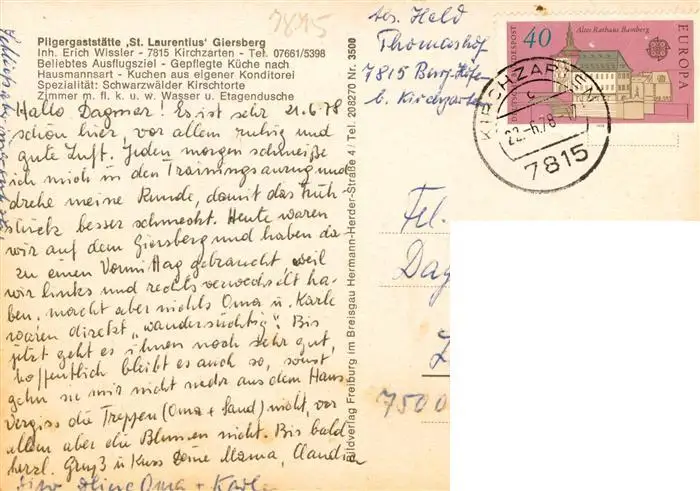 7815
Pilgergaststätte ‚St. Laurentius' Giersberg
Inh. Erich Wissler - 7815 Kirchzarten - Tel. 07661/5398
Beliebtes Ausflugsziel - Gepflegte Küche nach
Hausmannsart - Kuchen aus eigener Konditorei
Spezialität: Schwarzwälder Kirschtorte
Zimmer m. fl. k. u. w. Wasser u. Etagendusche
21.6.78
Hallo Dagmar! Es ist sehr
schön hier, vor allem ruhig und
gute Luft. Jeden morgen schmeiße
ich mich in den Trainingsanzug und
drehe meine Runde, damit das Früh-
stück besser schmeckt. Heute waren
wir auf dem Giersberg und haben da-
zu einen Vormittag gebraucht weil
wir links und rechts verwechselt ha-
ben, macht aber nichts Oma u. Karle
waren direkt „wandersüchtig". Bis
jetzt geht es ihnen noch sehr gut,
hoffentlich bleibt es auch so, sonst
gehn sie mir nicht mehr aus dem Haus
Vergiss die Treppen (Oma + Sand) nicht, vor
allem aber die Blumen nicht. Bis bald
herzl. Gruß u Kuss Deine Mama, Claudia
Deine Oma + Karle
Bildverlag Freiburg im Breisgau Hermann-Herder-Straße 4 / Tel. 208270 Nr. 3500
Abs. Held
Thomashof
7815 Burg-Höfe
b. Kirchzarten
DEUTSCHE BUNDESPOST
40
Altes Rathaus Bamberg
EUROPA
KIRCHZARTEN
c
22.-6.78.-17
7815
Frl.
Dag
7500